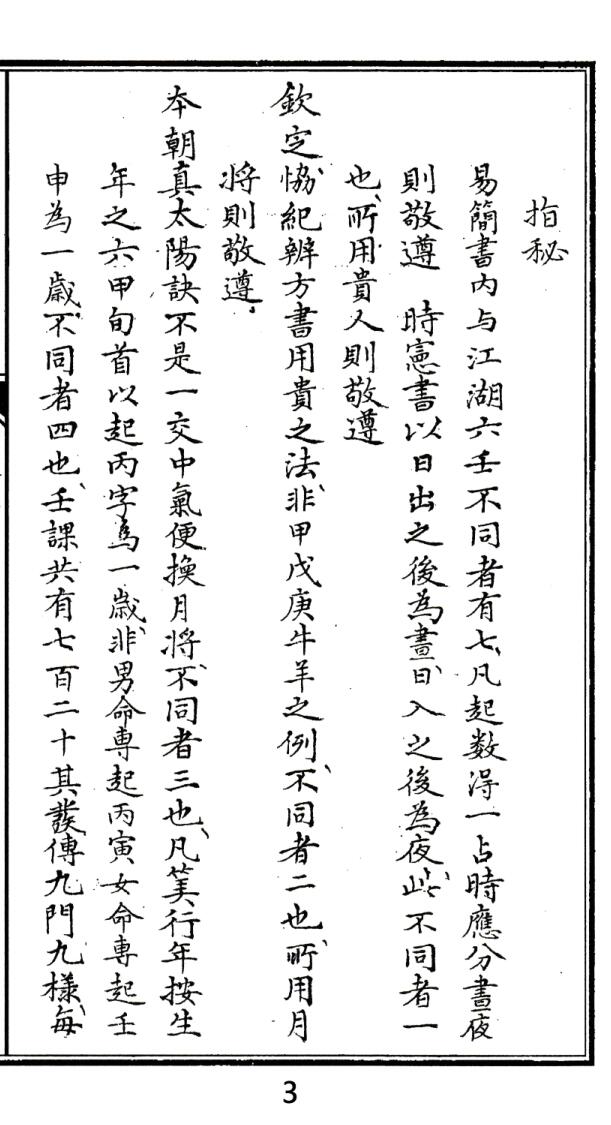 指秘
易簡書內与江湖六壬不同者有七、凡起数淂一占時應分晝夜
則敬遵　時憲書以日出之後為晝、日入之後為夜、此不同者一
也、所用貴人則敬遵
欽定恊紀辨方書用貴之法、非甲戊庚牛羊之例、不同者二也、所用月
将則敬遵、
本朝真太陽訣不是一交中氣便換月将、不同者三也、凡筭行年按生
年之六甲旬首以起丙字為一歳、非男命専起丙寅女命専起壬
申為一歳、不同者四也、壬課共有七百二十其發傳九門九樣、每
3